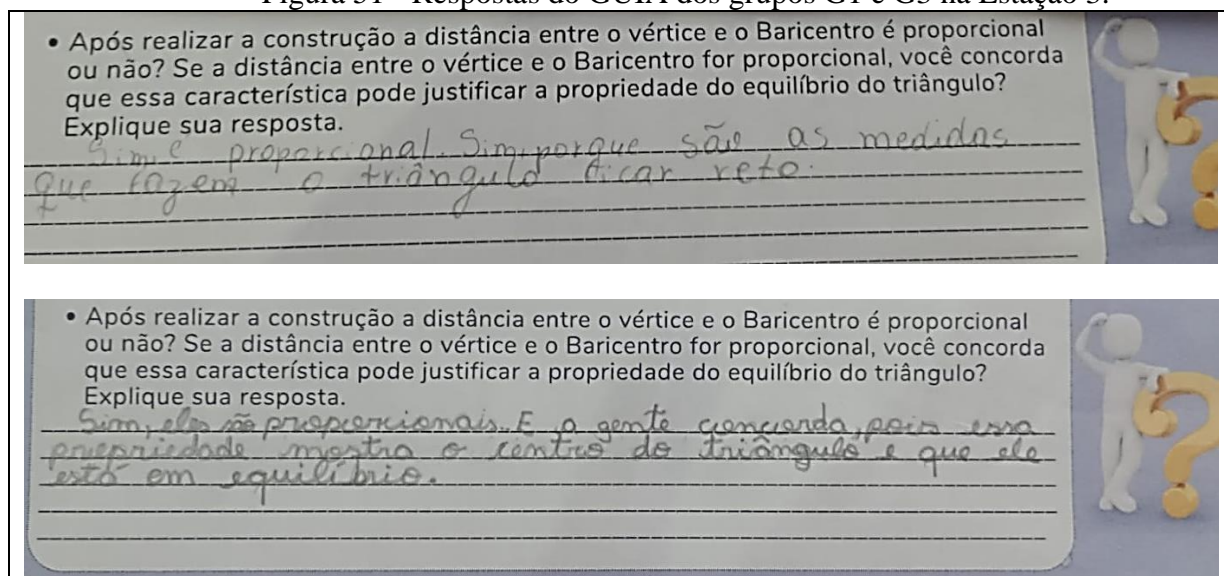 Figura 31 - Respostas do GUIA dos grupos G1 e G3 na Estação 3.
• Após realizar a construção a distância entre o vértice e o Baricentro é proporcional
ou não? Se a distância entre o vértice e o Baricentro for proporcional, você concorda
que essa característica pode justificar a propriedade do equilíbrio do triângulo?
Explique sua resposta.
Sim, é proporcional. Sim, porque são as medidas
que fazem o triângulo ficar reto.
• Após realizar a construção a distância entre o vértice e o Baricentro é proporcional
ou não? Se a distância entre o vértice e o Baricentro for proporcional, você concorda
que essa característica pode justificar a propriedade do equilíbrio do triângulo?
Explique sua resposta.
Sim, eles são proporcionais. E a gente concorda, pois essa
propriedade mostra o centro do triângulo e que ele
está em equilíbrio.